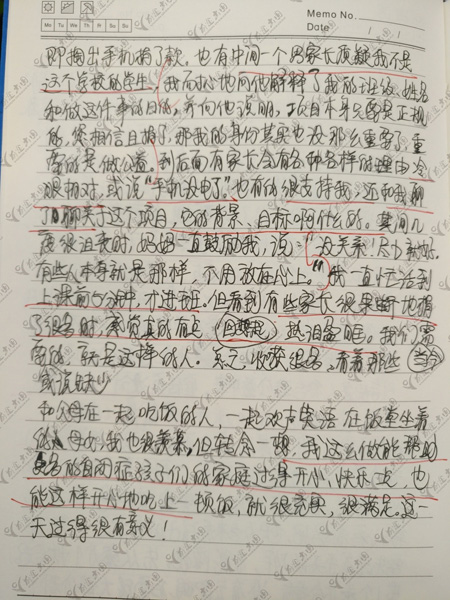 Memo No.
Mo Tu We Th Fr Sa Su
Date / /
即掏出手机捐了款。也有中间一个男家长质疑我不是
这个学校的学生,我耐心地向他解释了我的班级、姓名
和做这件事的目的,并向他说明,项目本身只要是正规
的,您相信且捐了,那我的身份其实也没那么重要了,重
要的是做公益。到后面有家长会有各种各样的理由冷
眼相对,或说“手机没电了”。也有的很支持我,还和我聊
了聊关于这个项目,它的背景、目标啊什么的。其间几
度很沮丧时,妈妈一直鼓励我,说:“没关系!尽力就好。
有些人本身就是那样,不用放在心上。”我一直忙活到
上课前5分钟,才进班。但看到有些家长很果断地捐
了很多时,感觉真的有点 热泪盈眶。我们需
要的就是这样的人。 收获很多,看着那些 当今
或许缺少
和父母在一起吃饭的人,一起欢声笑语在饭桌坐着
的 母女,我也很羡慕,但转念一想,我这么做能帮助
更多的自闭症孩子们的家庭过得开心,快乐一点,也
能这样开心地吃上一顿饭,就很充实,很满足。这一
天过得很有意义!